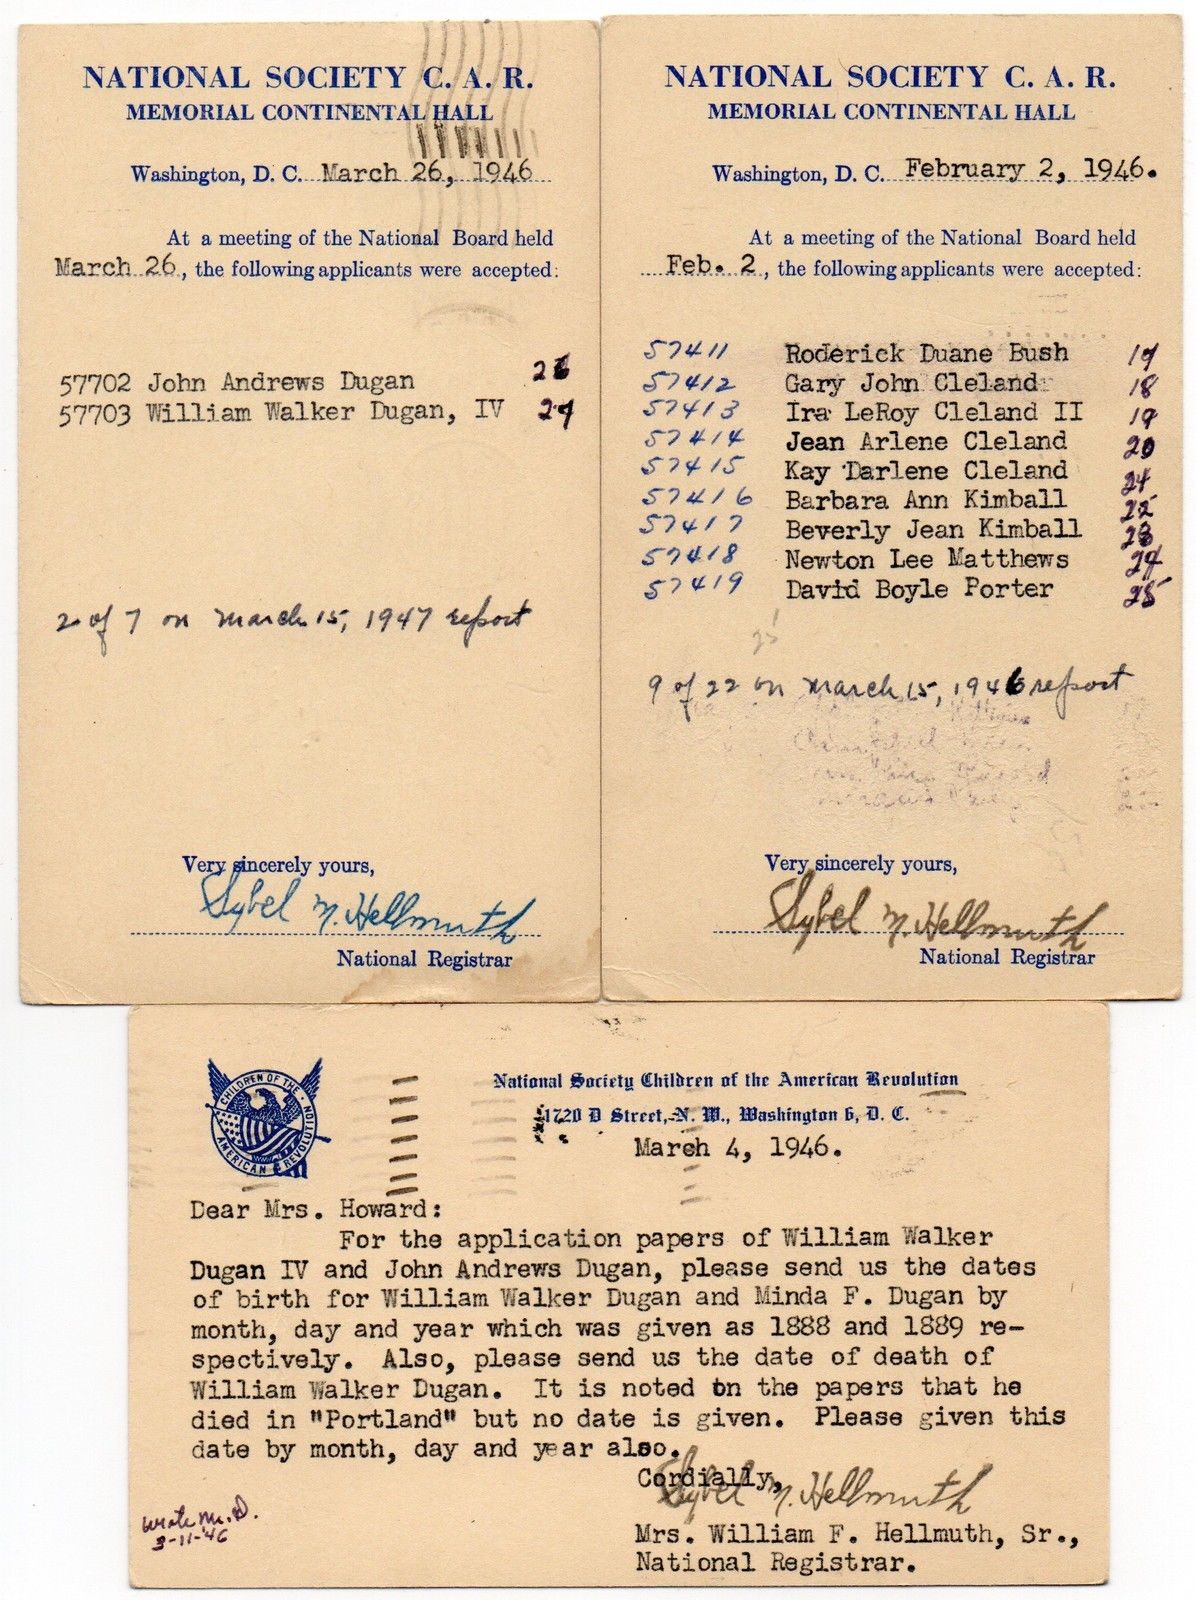 NATIONAL SOCIETY C. A. R.
MEMORIAL CONTINENTAL HALL
Washington, D. C. March 26, 1946
At a meeting of the National Board held
March 26, the following applicants were accepted:
57702 John Andrews Dugan
57703 William Walker Dugan, IV
2 of 7 on March 15, 1947 report
Very sincerely yours,
Sybel N. Hellmuth
National Registrar
NATIONAL SOCIETY C. A. R.
MEMORIAL CONTINENTAL HALL
Washington, D. C. February 2, 1946.
At a meeting of the National Board held
Feb. 2, the following applicants were accepted:
57411 Roderick Duane Bush 17
57412 Gary John Cleland 18
57413 Ira LeRoy Cleland II 19
57414 Jean Arlene Cleland 20
57415 Kay Darlene Cleland
57416 Barbara Ann Kimball 22
57417 Beverly Jean Kimball 23
57418 Newton Lee Matthews 24
57419 David Boyle Porter 25
25
9 of 22 on March 15, 1946 report
Very sincerely yours,
Sybel N. Hellmuth
National Registrar
CHILDREN OF THE AMERICAN REVOLUTION
National Society Children of the American Revolution
1720 D Street, N. W., Washington 6, D. C.
March 4, 1946.
Dear Mrs. Howard:
For the application papers of William Walker
Dugan IV and John Andrews Dugan, please send us the dates
of birth for William Walker Dugan and Minda F. Dugan by
month, day and year which was given as 1888 and 1889 re-
spectively. Also, please send us the date of death of
William Walker Dugan. It is noted on the papers that he
died in "Portland" but no date is given. Please given this
date by month, day and year also.
Cordially,
Sybel N. Hellmuth
Mrs. William F. Hellmuth, Sr.,
National Registrar.
wrote M. D.
3-11-46